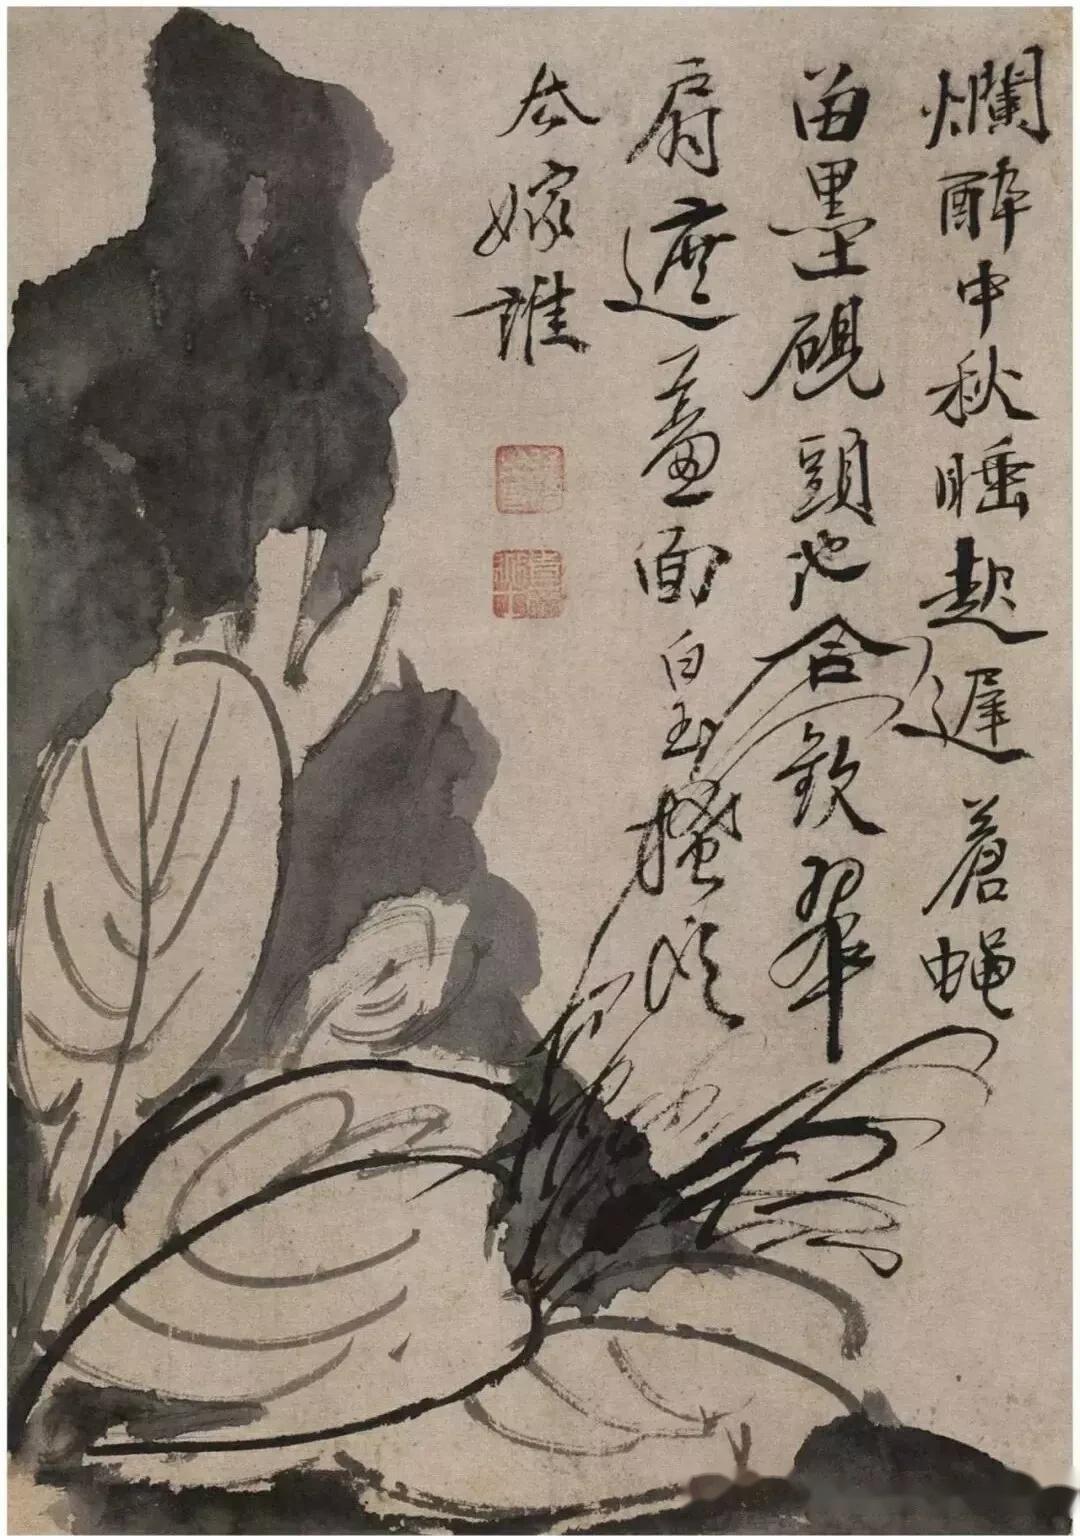 爛醉中秋睡起遲蒼蠅
留墨硯頭池合歡翠
扇遮羞面白玉搔頭
去嫁誰